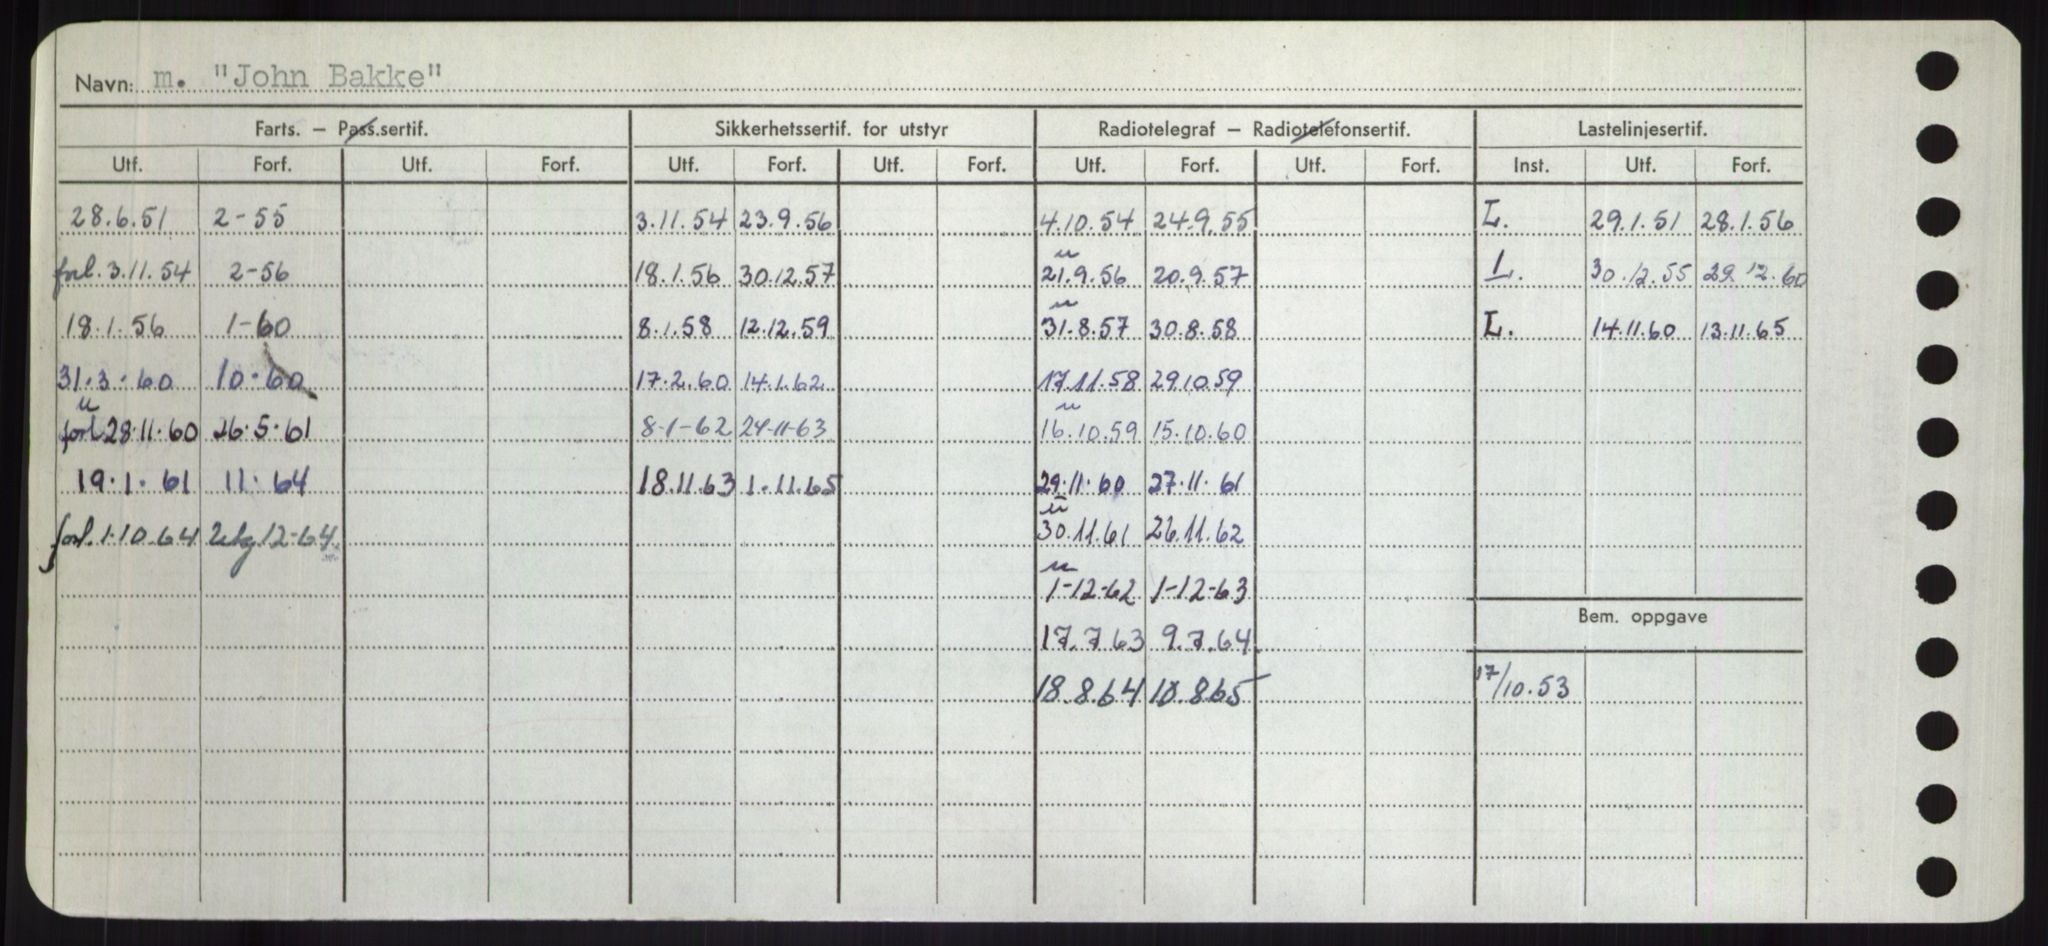 Navn: m. "John Bakke"
Farts. – Pass.sertif. Sikkerhetssertif. for utstyr Radiotelegraf – Radiotelefonsertif. Lastelinjesertif.
Utf. Forf. Utf. Forf. Utf. Forf. Utf. Forf. Utf. Forf. Utf. Forf. Inst. Utf. Forf.
28.6.51 2-55 3.11.54 23.9.56 4.10.54 24.9.55 L. 29.1.51 28.1.56
forl. 3.11.54 2-56 18.1.56 30.12.57 21.9.56 20.9.57 L. 30.12.55 29.12.60
18.1.56 1-60 8.1.58 12.12.59 31.8.57 30.8.58 L. 14.11.60 13.11.65
31.3.60 10.60 17.2.60 14.1.62 17.11.58 29.10.59
forl 28.11.60 26.5.61 8-1-62 24-11-63 16.10.59 15.10.60
19.1.61 11.64 18.11.63 1.11.65 29.11.60 27.11.61
forl. 1.10.64 12-64 30.11.61 26.11.62
1-12-62 1-12-63
Bem. oppgave
17.7.63 9.7.64
18.8.64 10.8.65 17/10.53